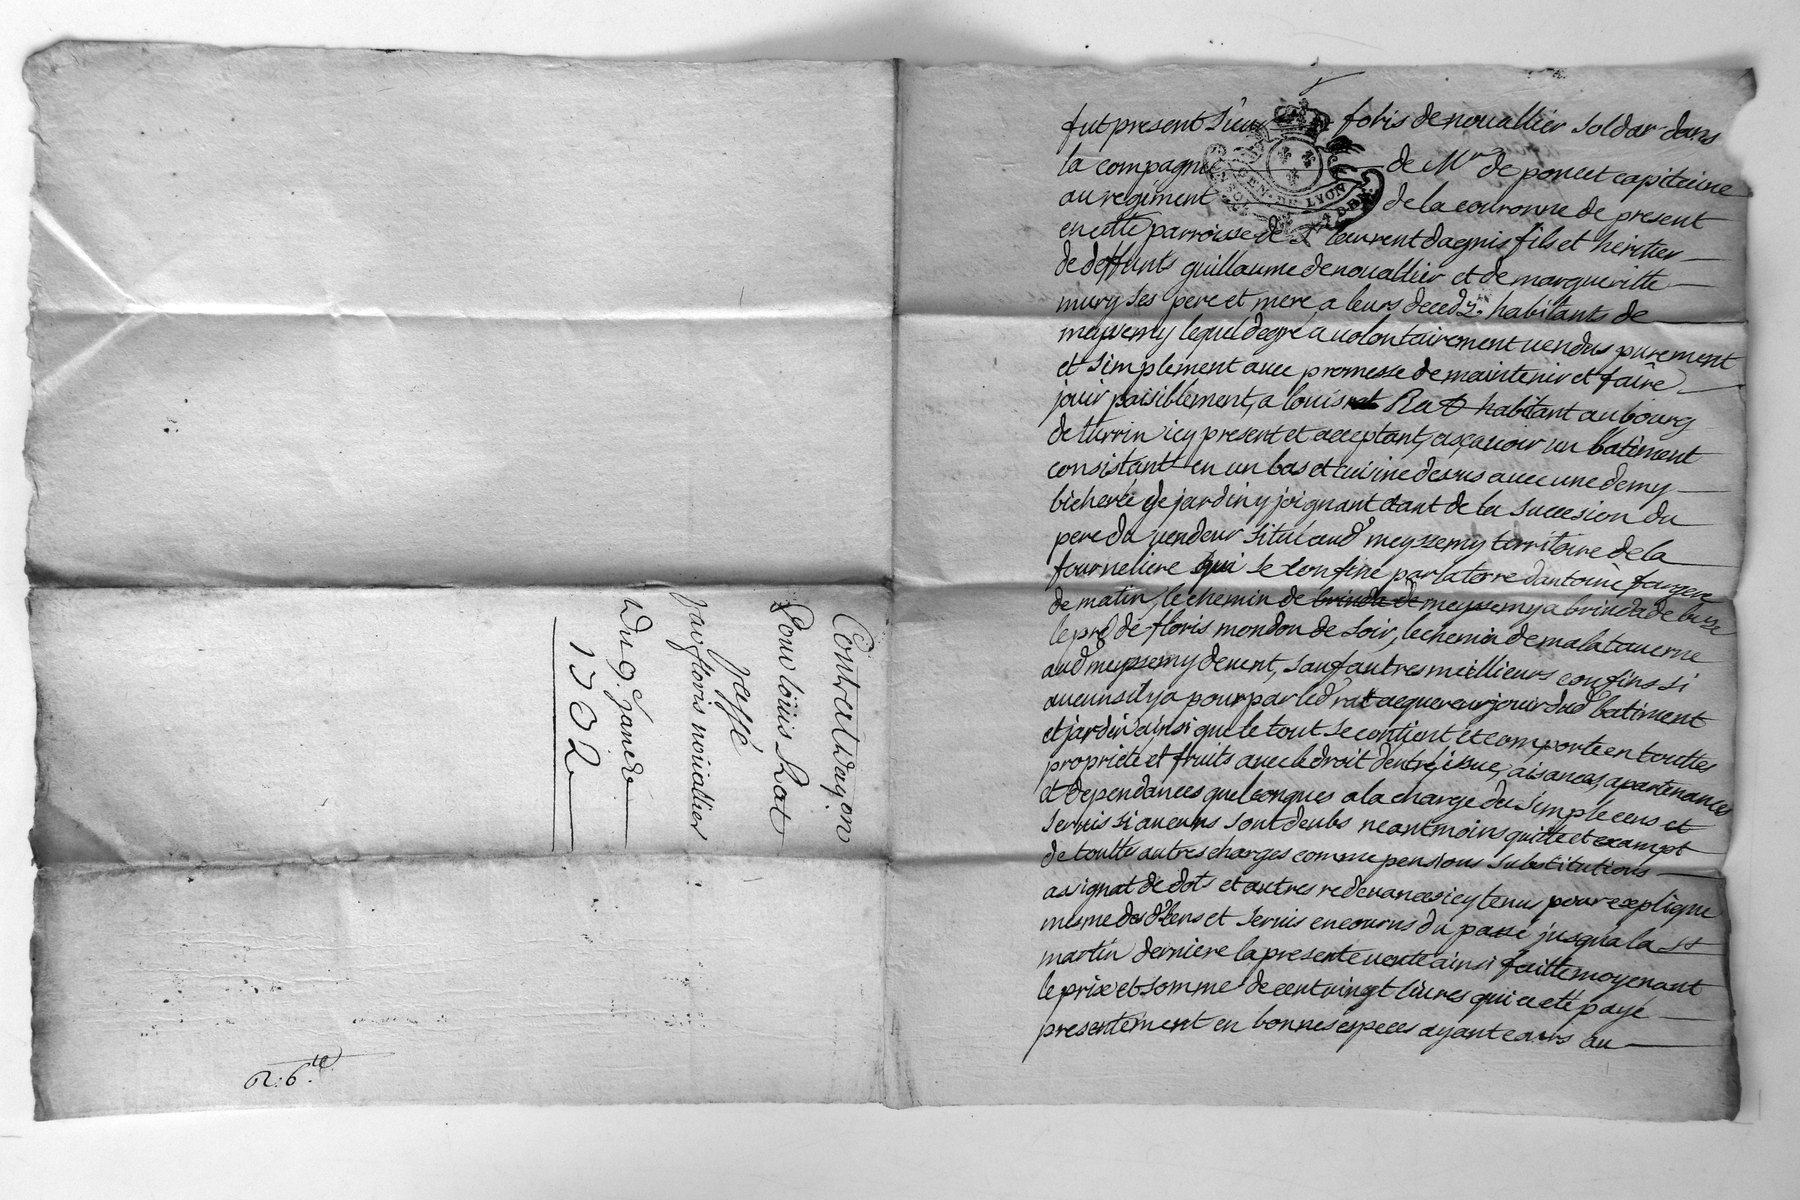 Contrat daq.on
Pour loüis Rat
passé
par floris noüalier
du 9 Janer
1702
R: 6.te
fut present Sieur floris denouallier soldat dans
GEN. DE LYON
la compagnie de Mr de poncet capitaine
au regiment de la couronne de present
en cette parroisse de st laurent dagnis fils et heritier
de deffunts guillaume denouallier et de margueritte
mury ses pere et mere a leurs deced. habitants de
meyssemy lequel de gre a uolontairement uendus purement
et simplement auec promesse de maintenir et faire
jouir paisiblement, a louis Rat habitant au bourg
de turrin icy present et acceptant, ascauoir un batiment
consistant en un bas et cuisine desus auec une demy
bicheree de jardin y joignant etant de la succesion du
pere du uendeur situé aud meyssemy territoire de la
fourneliere qui se confine par la terre dantoine fargere
de matin, le chemin de brinda de meyssemy a brinda de bize
le pré de floris mondon de soir, le chemin de malatauerne
aud meyssemy de uent, sauf autres meillieurs confins si
aucuns il y a pour par led rat acquereur jouir dud batiment
et jardin ainsi que le tout se contient et comporte en touttes
proprieté et fruits auec le droit dentré, issue, aisances, apartenances
et dependances quelconques a la charge du simple cens et
seruis si aucuns sont deubs neantmoins quitte et exampt
de toutte autres charges comme pensions substitutions
assignat de dots et autres redeuances icy tenu pour expligué
mesme desd cens et seruis encourus du passé jusqua la st
martin derniere la presente uente ainsi faitte moyenant
le prix et somme de cent uingt liures qui a eté payé
presentement en bonnes especes ayant cours au